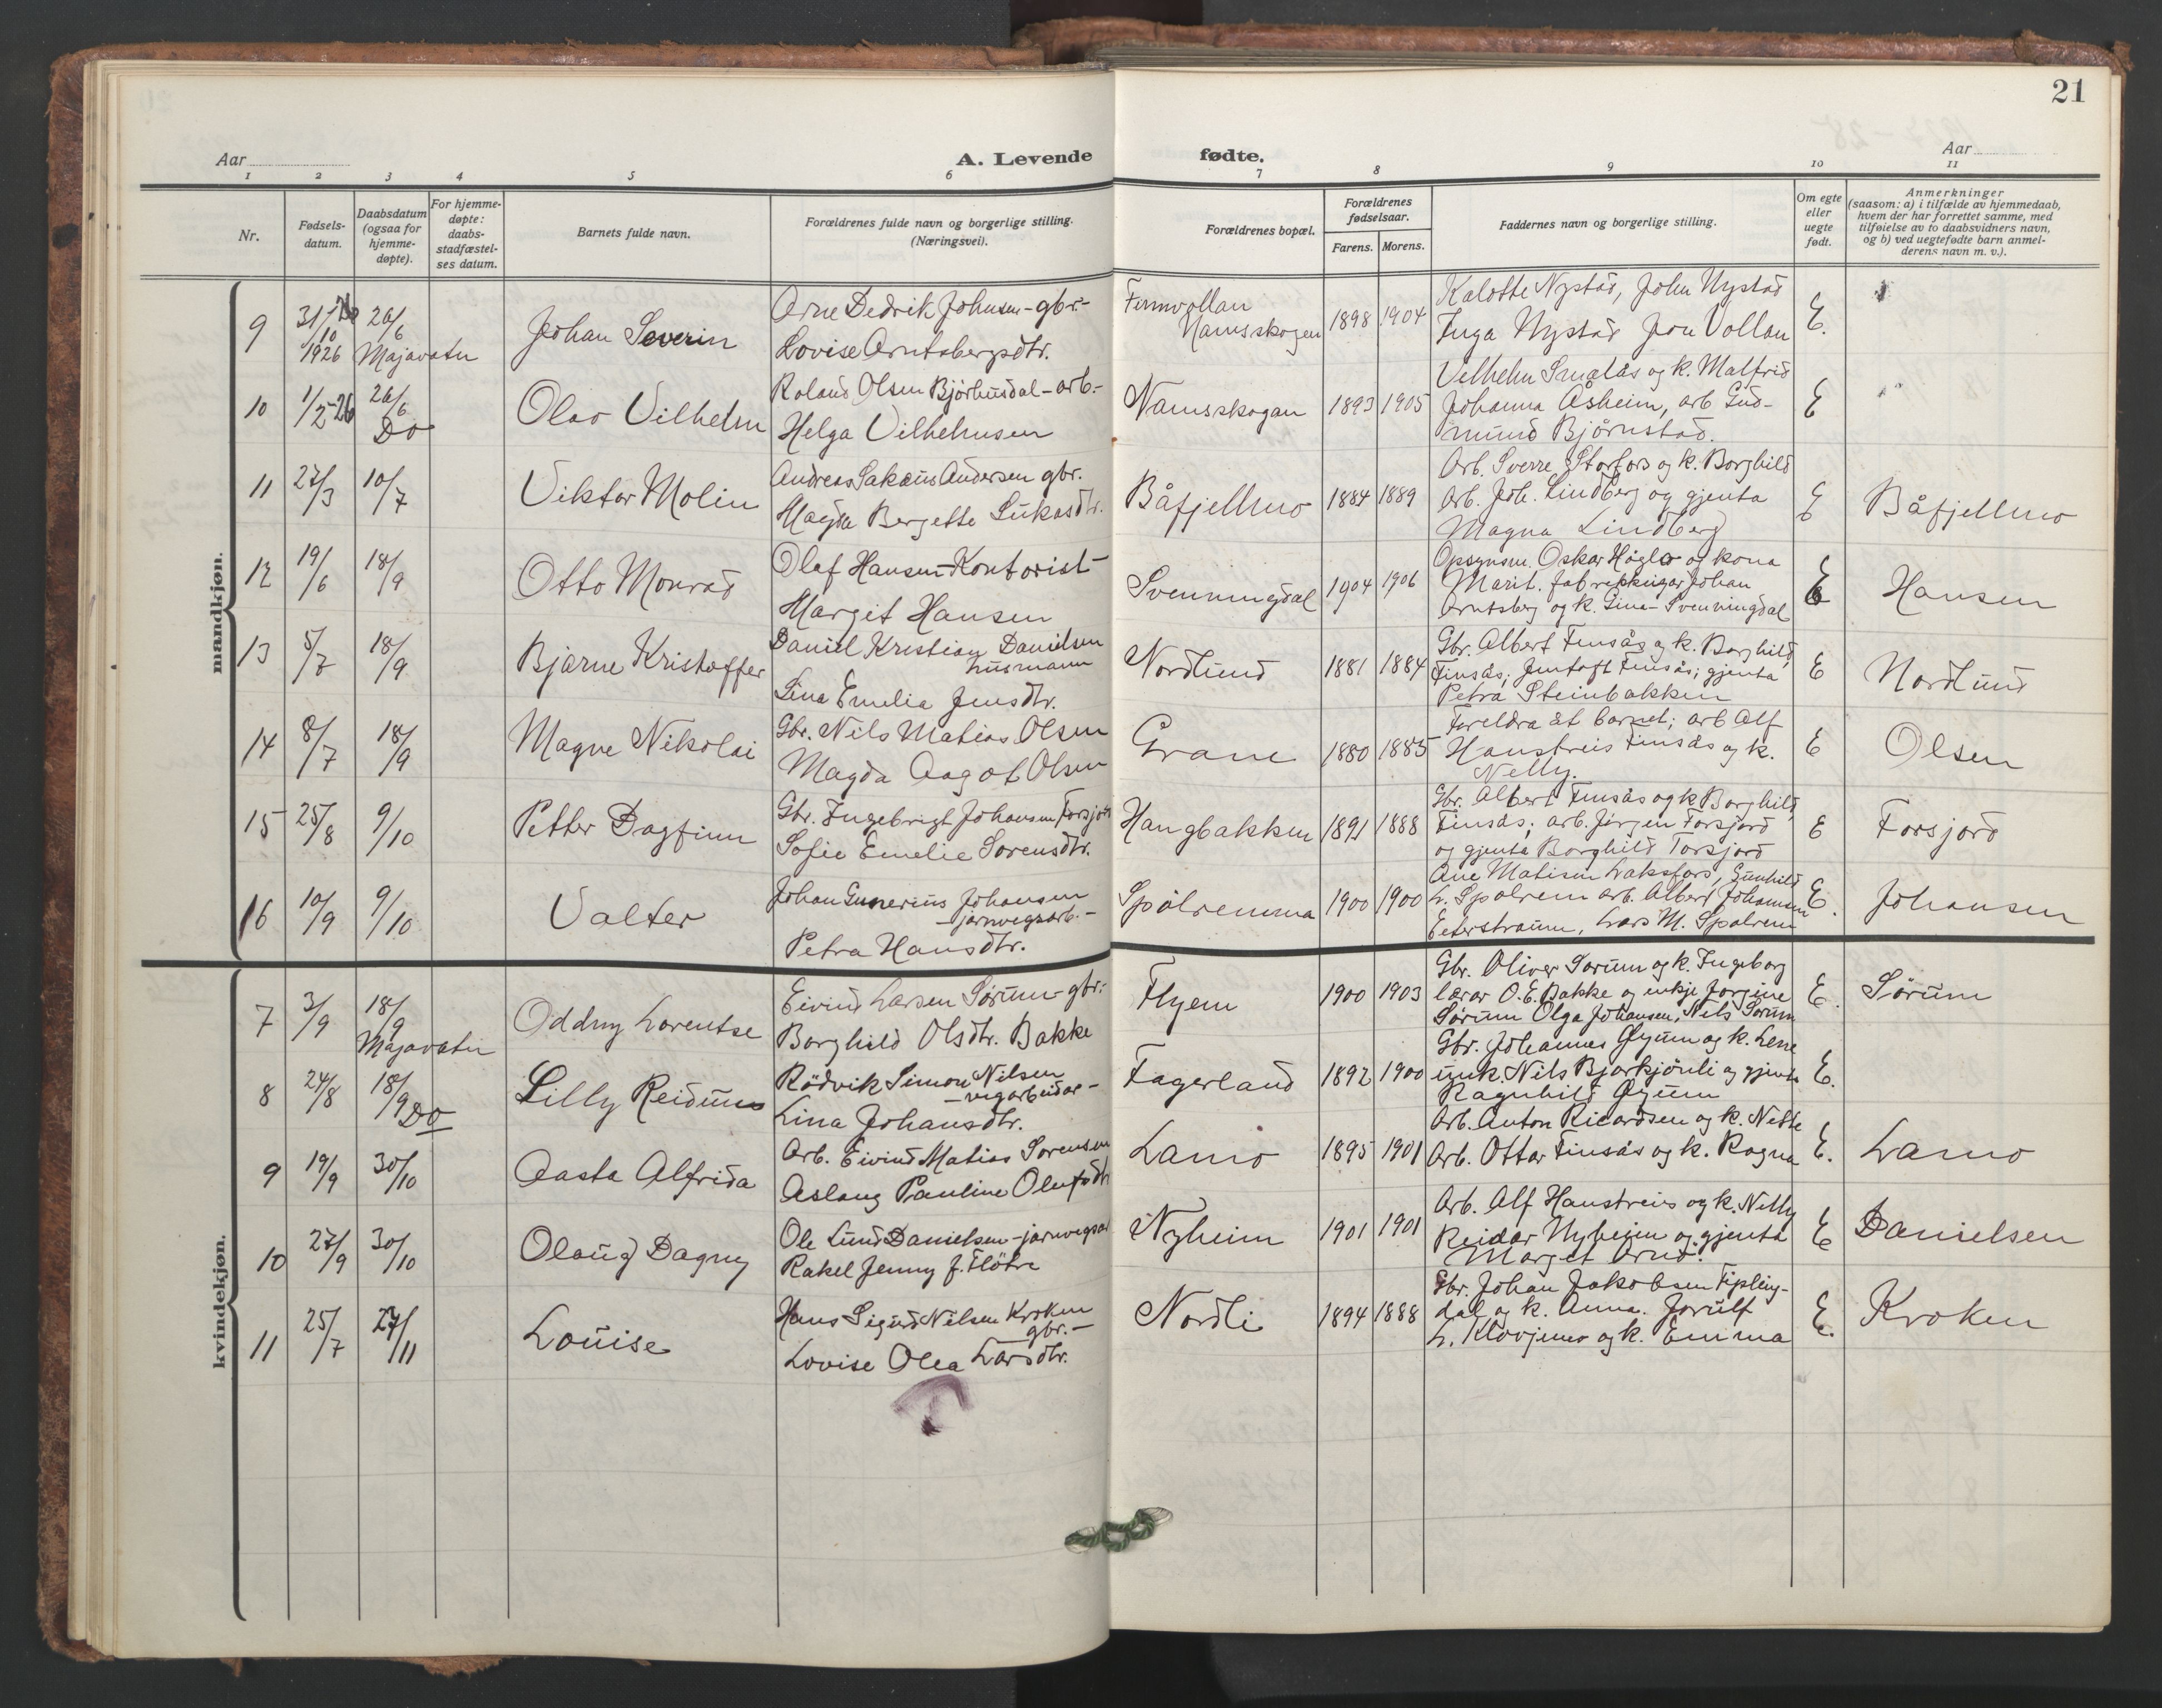 21
Aar
A. Levende
fødte.
Aar
1 2 3 4 5 6 7 8 9 10 11
Nr.
Fødsels-
datum.
Daabsdatum
(ogsaa for
hjemme-
døpte).
For hjemme-
døpte:
daabs-
stadfæstel-
ses datum.
Barnets fulde navn.
Forældrenes fulde navn og borgerlige stilling.
(Næringsvei).
Forældrenes bopæl.
Forældrenes
fødselsaar.
Farens. Morens.
Faddernes navn og borgerlige stilling.
Om egte
eller
uegte
født.
Anmerkninger
(saasom: a) i tilfælde av hjemmedaab,
hvem der har forrettet samme, med
tilføielse av to daabsvidners navn,
og b) ved uegtefødte barn anmel-
derens navn m. v.).
mandkjøn.
9 31/10 1926 26/6 Majavatn
Johan Severin
Arne Dedrik Johnsen - gbr. -
Lovise Arntsbergsdtr.
Namsskogen
1898 1904
Kalotte Nystad, John Nystad
Inga Nystad Jon Vollan
E.
10 1/2-26 26/6 Do
Olav Vilhelm
Roland Olsen Bjørhusdal - arb. -
Helga Vilhelmsen
Namsskogan
1893 1905
Vilhelm Smalås og k. Malfrid
Johanna Åsheim, arb Gud-
mund Bjørnstad.
E
11 27/3 10/7
Viktor Molin
Andreas Sakæus Andersen gbr.
Magda Bergette Lukasdtr.
Båfjellmo
1884 1889
Arb. Sverre Storfors og k. Borghild
Arb. Joh. Lindberg og gjenta
Magna Lindberg
E
Båfjellmo
12 19/6 18/9
Otto Monrad
Olaf Hansen - Kontorist -
Margit Hansen
Svenningdal
1904 1906
Opsynsm. Oskar Høglo og kona
Marit. Johan
Arntsberg og k. Lina - Svenningdal
E
Hansen
13 5/7 18/9
Bjarne Kristoffer
Daniel Kristian Danielsen
husmann
Lina Emelia Jensdtr.
Nordlund
1881 1884
Gbr. Albert Finsås og k. Borghild
Finsås; Jentoft Finsås; gjenta
Petra Steinbakken
E
Nordlund
14 8/7 18/9
Magne Nikolai
Gbr. Nils Matias Olsen
Magda Aagot Olsen
Grane
1880 1885
Foreldra åt barnet; arb Alf
Hanstreis Finsås og k.
Nelly.
E
Olsen
15 25/8 9/10
Petter Dagfinn
Gbr. Ingebrigt Johansen Forsjord
Sofie Emelie Sorensdtr.
Haugbakken
1891 1888
Gbr. Albert Finsås og k Borghild
Finsås; arb. Jørgen Forsjord
og gjenta Borghild Forsjord
E
Forsjord
16 10/9 9/10
Valter
Johan Gunerius Johansen
- jarnvegsarb. -
Petra Hansdtr.
Spolremma
1900 1900
Ane Matisen Laksfors, Gunhild
L. Spolrem arb. Albert Johansen
Eiterstraum, Lars M. Spolrem
E.
Johansen
kvindekjøn.
7 3/9 18/9 Majavatn
Oddny Lorentse
Eivind Larsen Sørum - gbr. -
Borghild Olsdtr. Bakke
Flyem
1900 1903
Gbr. Oliver Sorum og k. Ingeborg
lærar O. E. Bakke og enkje Jorgine
Sørum Olga Johansen, Nils Sorum
E.
Sørum
8 24/8 18/9 Do
Lilly Reidun
Rödvik Simon Nilsen
- vegarbeidar -
Lina Johansdtr.
Fagerland
1892 1900
Gbr. Johannes Øyum og k. Lene
ungk. Nils Bjorkjönli og gjenta
Ragnhild Øyum
E.
9 19/9 30/10
Aasta Alfrida
Arb. Eivind Matias Sorensen
Aslaug Pauline Olufsdtr
Lamo
1895 1901
Arb. Anton Ricardsen og k. Nette
Arb. Ottar Finsås og k. Ragna
E.
Lamo
10 27/9 30/10
Olaug Dagny
Ole Lund Danielsen - jarnvegsar
Rakel Jenny f. Flötre
Nyheim
1901 1901
Arb. Alf Hanstreis og k. Nelly
Reidar Nyheim og gjenta
Margit
E
Danielsen
11 25/7 27/11
Louise
Hans Sigurd Nilsen Kroken
gbr. -
Lovise Olea Larsdtr.
Nordli
1894 1888
Gbr. Johan Jakobsen Fipling-
dal og k. Anna. Jorulf
L. Klovjemo og k. Emma
E.
Kroken